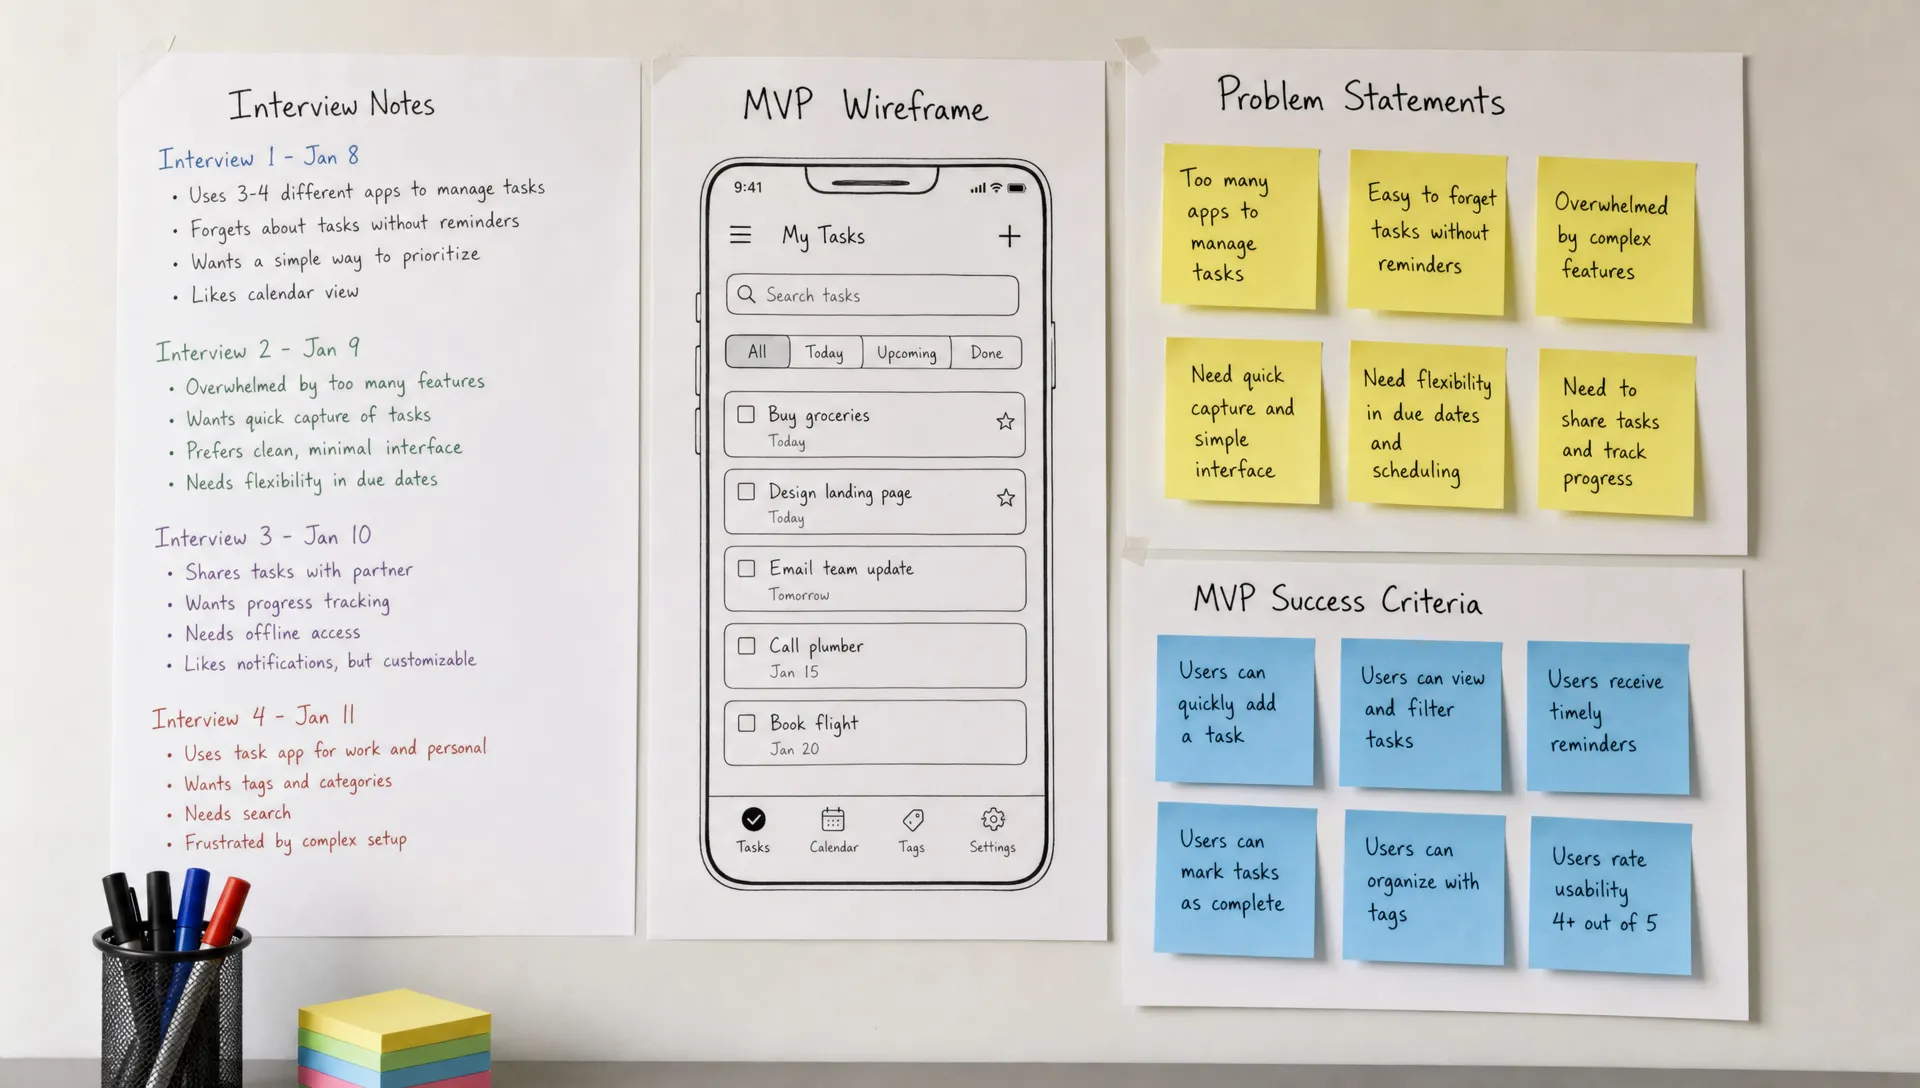 Interview Notes
Interview 1 - Jan 8
• Uses 3-4 different apps to manage tasks
• Forgets about tasks without reminders
• Wants a simple way to prioritize
• Likes calendar view
Interview 2 - Jan 9
• Overwhelmed by too many features
• Wants quick capture of tasks
• Prefers clean, minimal interface
• Needs flexibility in due dates
Interview 3 - Jan 10
• Shares tasks with partner
• Wants progress tracking
• Needs offline access
• Likes notifications, but customizable
Interview 4 - Jan 11
• Uses task app for work and personal
• Wants tags and categories
• Needs search
• Frustrated by complex setup
MVP Wireframe
9:41
My Tasks
Search tasks
All Today Upcoming Done
Buy groceries
Today
Design landing page
Today
Email team update
Tomorrow
Call plumber
Jan 15
Book flight
Jan 20
Tasks Calendar Tags Settings
Problem Statements
Too many
apps to
manage
tasks
Easy to forget
tasks without
reminders
Overwhelmed
by complex
features
Need quick
capture and
simple
interface
Need flexibility
in due dates
and
scheduling
Need to
share tasks
and track
progress
MVP Success Criteria
Users can
quickly add
a task
Users can view
and filter
tasks
Users receive
timely
reminders
Users can
mark tasks
as complete
Users can
organize with
tags
Users rate
usability
4+ out of 5